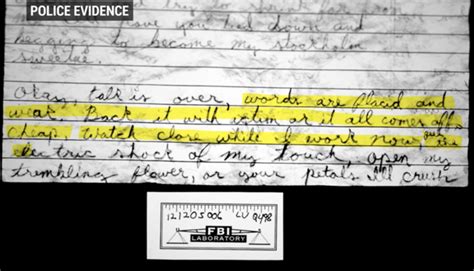 POLICE EVIDENCE
have you tied down and
begging to become my Stockholm
sweetie.
Okay, talk is over, words are placid and
weak. Back it with action or it all comes off
cheap. Watch close while I work now, the
electric shock of my touch, open my
trembling flower, or your petals I'll crush
121205006 LV Q498
FBI
LABORATORY